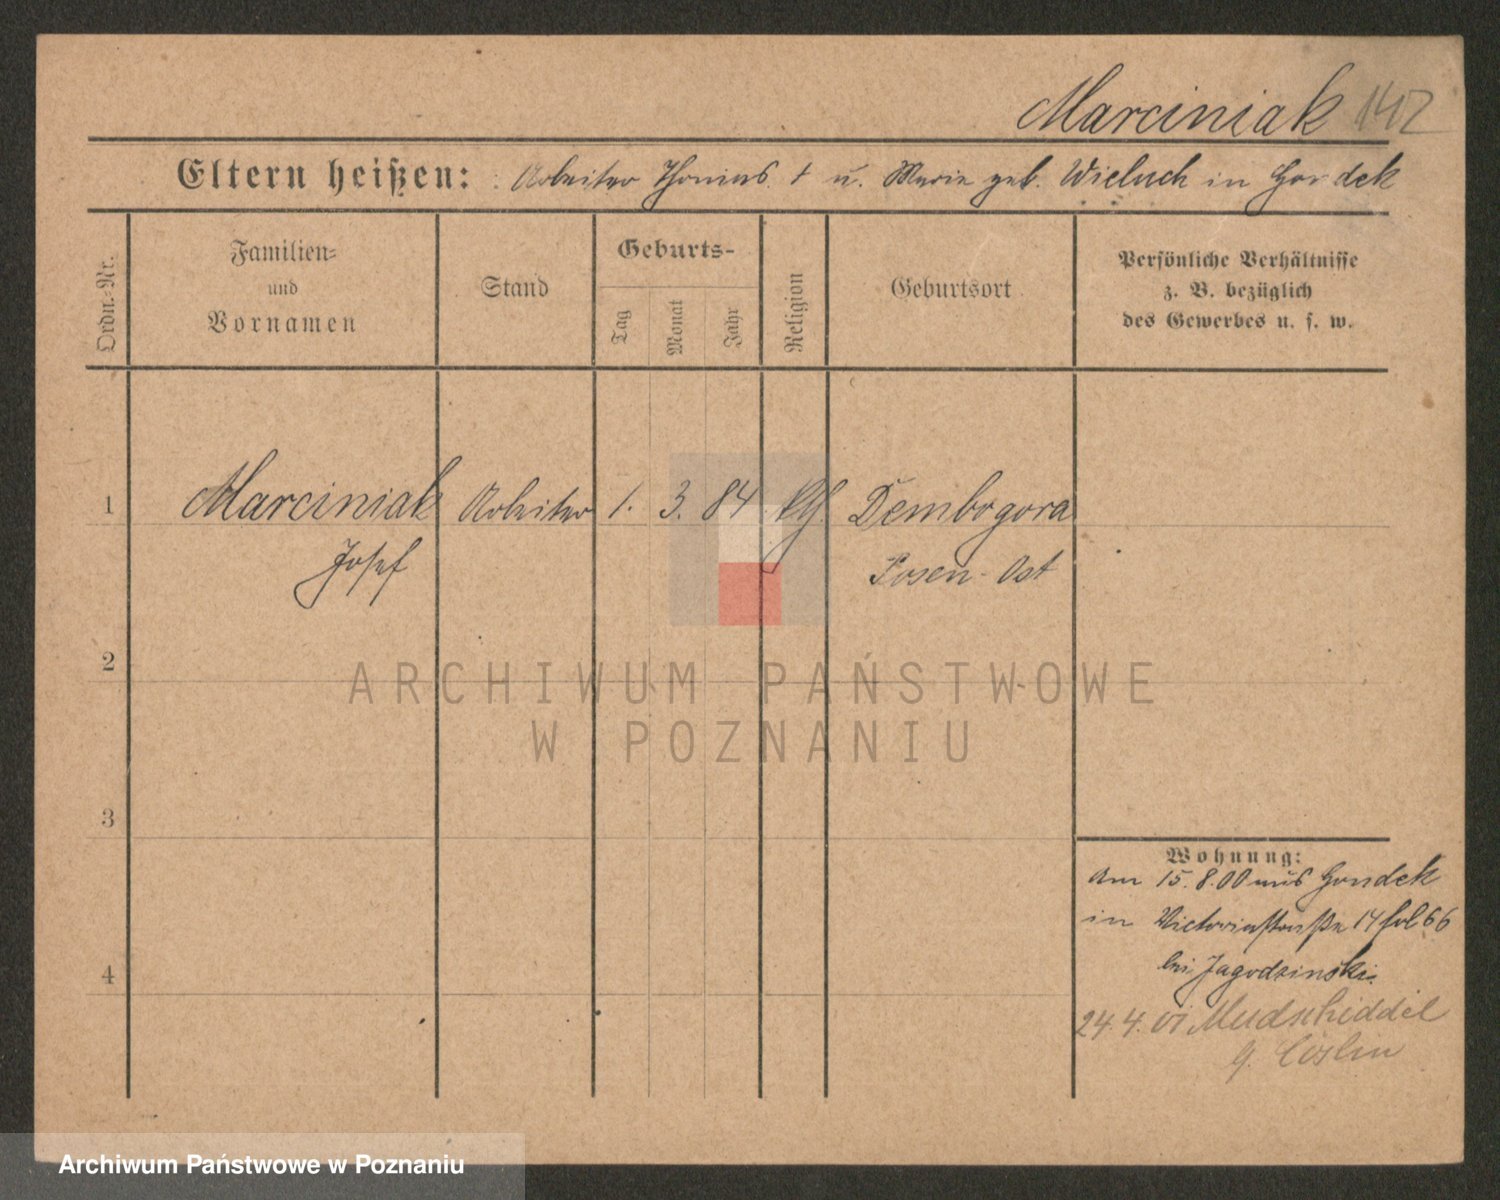 Marciniak 142
Eltern heißen: Arbeiter Thomas † u. Marie geb. Wieluch in Gondek
Ordn.-Nr.
Familien-
und
Vornamen
Stand
Geburts-
Tag
Monat
Jahr
Religion
Geburtsort
Persönliche Verhältnisse
z. B. bezüglich
des Gewerbes u. s. w.
1 Marciniak Arbeiter 1. 3. 84 kth. Dembogora
Josef Posen-Ost
2
ARCHIWUM PAŃSTWOWE
W POZNANIU
3
Wohnung:
Am 15.8.00 aus Gondek
in Victoriastraße 14 fol 66
bei Jagodzinski
4
24.4.01
g. Cöslin
Archiwum Państwowe w Poznaniu